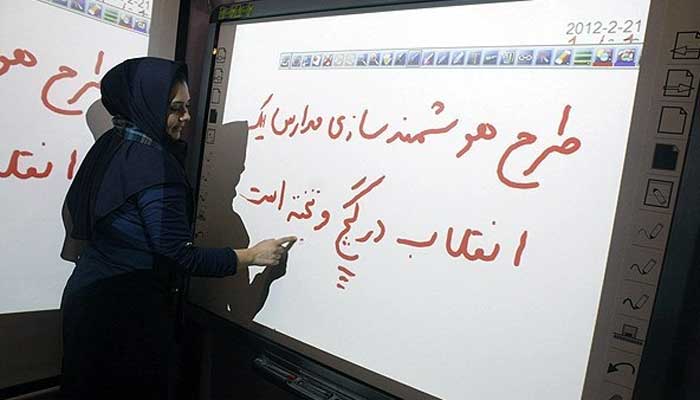 2012-2-21
طرح هوشمند سازی مدارس یک
انقلاب در گچ و تخته است